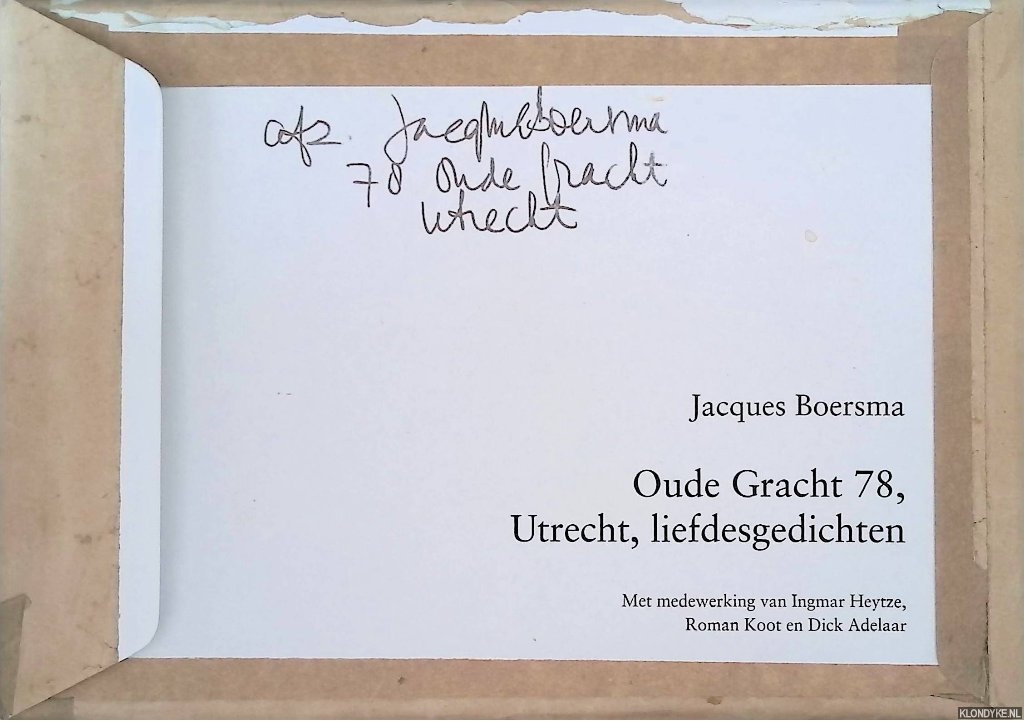 afz. Jacques Boersma
78 Oude Gracht
Utrecht
Jacques Boersma
Oude Gracht 78,
Utrecht, liefdesgedichten
Met medewerking van Ingmar Heytze,
Roman Koot en Dick Adelaar
KLONDYKE.NL